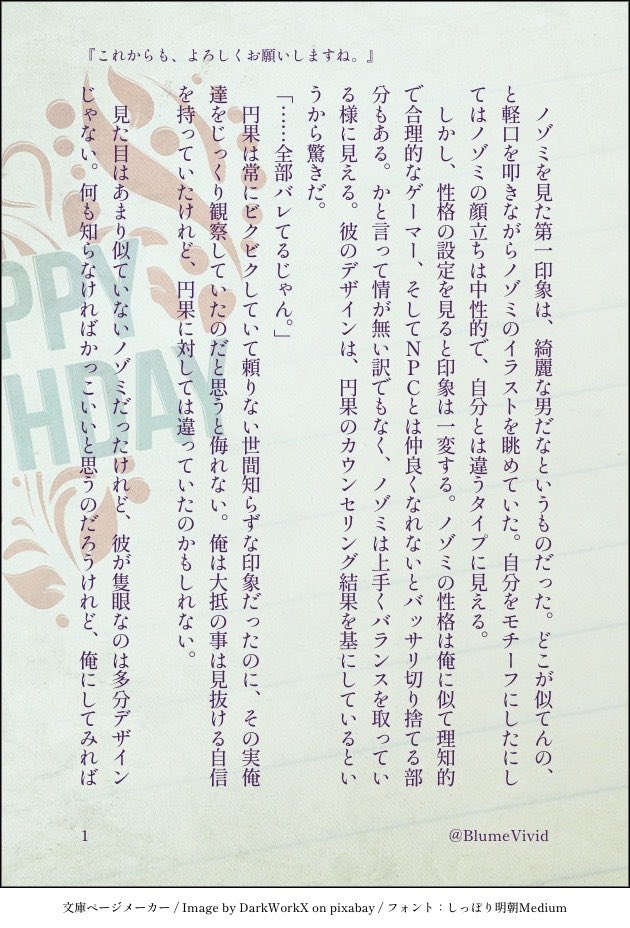 『これからも、よろしくお願いしますね。』
　ノゾミを見た第一印象は、綺麗な男だなというものだった。どこが似てんの、
と軽口を叩きながらノゾミのイラストを眺めていた。自分をモチーフにしたにし
てはノゾミの顔立ちは中性的で、自分とは違うタイプに見える。
　しかし、性格の設定を見ると印象は一変する。ノゾミの性格は俺に似て理知的
で合理的なゲーマー、そしてNPCとは仲良くなれないとバッサリ切り捨てる部
分もある。かと言って情が無い訳でもなく、ノゾミは上手くバランスを取ってい
る様に見える。彼のデザインは、円果のカウンセリング結果を基にしているとい
うから驚きだ。
「……全部バレてるじゃん。」
　円果は常にビクビクしていて頼りない世間知らずな印象だったのに、その実俺
達をじっくり観察していたのだと思うと侮れない。俺は大抵の事は見抜ける自信
を持っていたけれど、円果に対しては違っていたのかもしれない。
　見た目はあまり似ていないノゾミだったけれど、彼が隻眼なのは多分デザイン
じゃない。何も知らなければかっこいいと思うのだろうけれど、俺にしてみれば
PPY
HDAY
1
@BlumeVivid
文庫ページメーカー / Image by DarkWorkX on pixabay / フォント：しっぽり明朝Medium